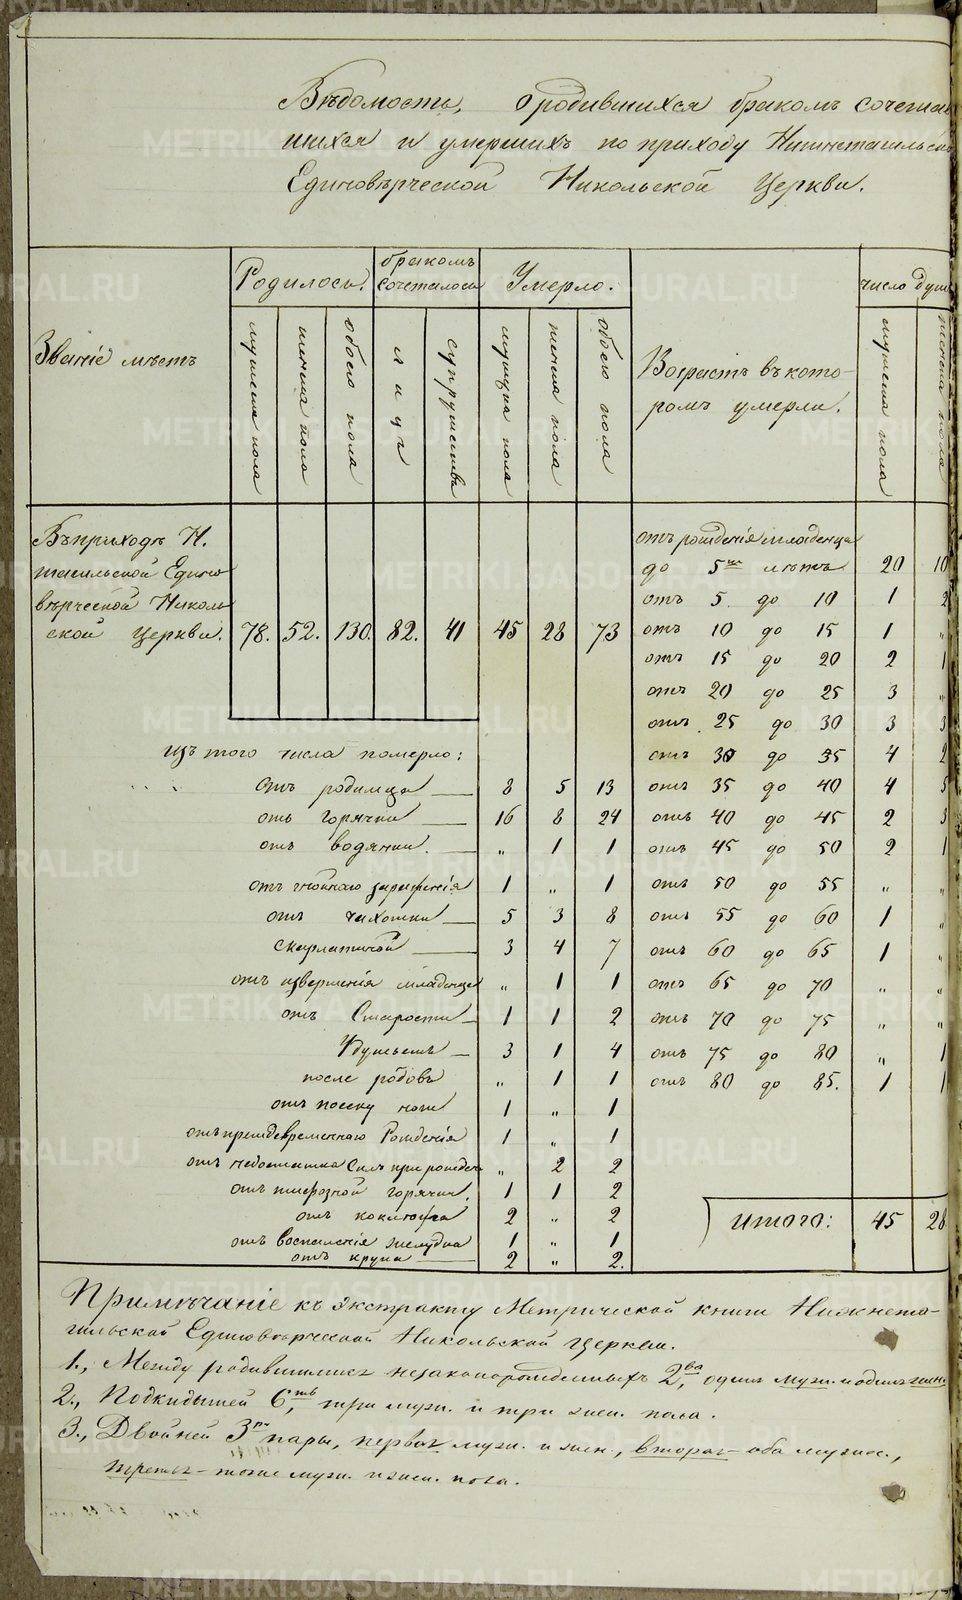 Вѣдомость, о родившихся бракомъ сочетав
шихся и умершихъ по приходу Нижнетагильск
Единовѣрческой Никольской Церкви.
Званіе мѣстъ
Родилось.
бракомъ сочеталось
Умерло.
Возрастъ въ кото-
ромъ умерли.
число душъ
мужеска пола
женска пола
обоего пола
лицъ
супружества
мужеска пола
женска пола
обоего пола
мужеска пола
женска пола
Въ приходѣ Н.
тагильской Едино
вѣрческой Николь
ской Церкви. 78. 52. 130. 82. 41 45 28 73
отъ рожденія младенца
до 5ти лѣтъ 20 10
отъ 5 до 10 1 2
отъ 10 до 15 1 "
отъ 15 до 20 2 1
отъ 20 до 25 3 "
отъ 25 до 30 3 3
отъ 30 до 35 4 2
отъ 35 до 40 4 5
отъ 40 до 45 2 3
отъ 45 до 50 2 1
отъ 50 до 55 " "
отъ 55 до 60 1 "
отъ 60 до 65 1 "
отъ 65 до 70 " "
отъ 70 до 75 " "
отъ 75 до 80 " 1
отъ 80 до 85. 1 1
итого: 45 28
изъ того числа померло:
отъ родимца 8 5 13
отъ горячки 16 8 24
отъ водянки. " 1 1
отъ гнойнаго зараженія 1 " 1
отъ чахотки 5 3 8
скарлатиной 3 4 7
отъ изверженія младенца " 1 1
отъ Старости 1 1 2
Удушьемъ 3 1 4
после родовъ " 1 1
отъ посеку ноги 1 " 1
отъ преждевременнаго Рожденія 1 " 1
отъ недостатка Силъ при рожден " 2 2
отъ тифозной горячки. 1 1 2
отъ коклюша 2 " 2
отъ воспаленія желудка 1 " 1
отъ крупа 2 " 2.
Примѣчаніе къ экстракту Метрической книги Нижнета-
гильской Единовѣрческой Никольской церкви.
1., Между родившимися незаконорожденныхъ 2ва, одинъ муж. и одинъ жен.
2., Подкидышей 6ть, три муж. и три жен. пола.
3., Двойней 3ри пары, первая муж. и жен., вторая – оба мужес.,
третья – тоже муж. и жен. пола.
METRIKI.GASO-URAL.RU